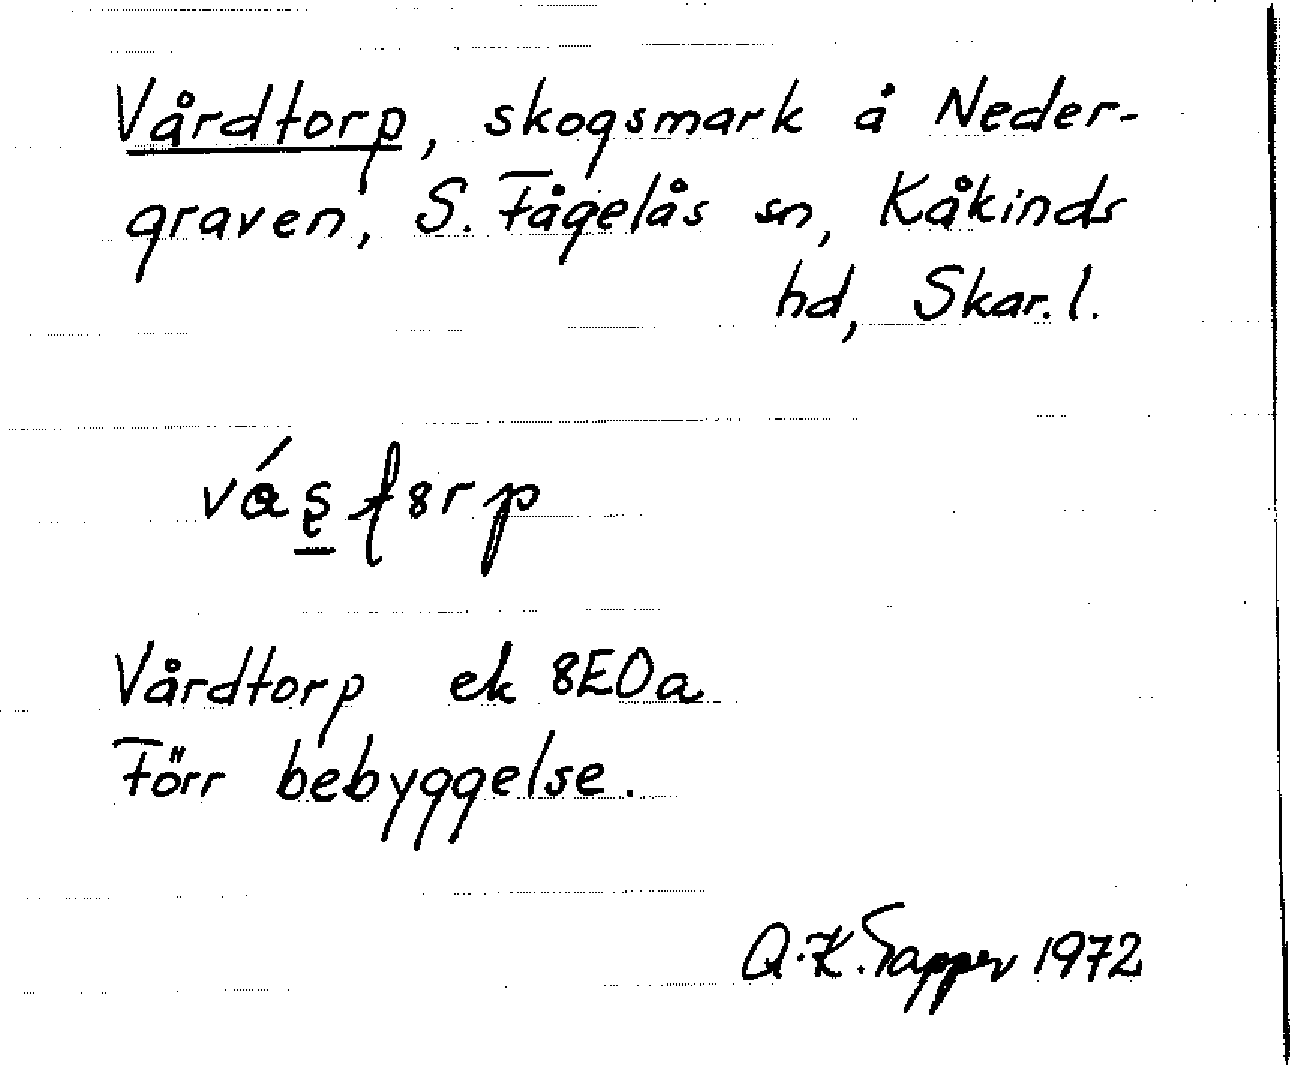 Vårdtorp, skogsmark å Neder-
graven, S. Fågelås sn, Kåkinds
hd, Skar. l.
Vårdtorp ek 8E0a
Förr bebyggelse.
Tapper 1972